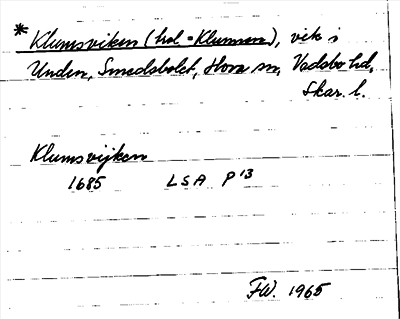 * Klumsviken (hd. = Klummen), vik i
Unden, Smedsbolet, Hova sn, Vadsbo hd,
Skar. l.
Klumsvijken
1685 LSA P 13
FW. 1965